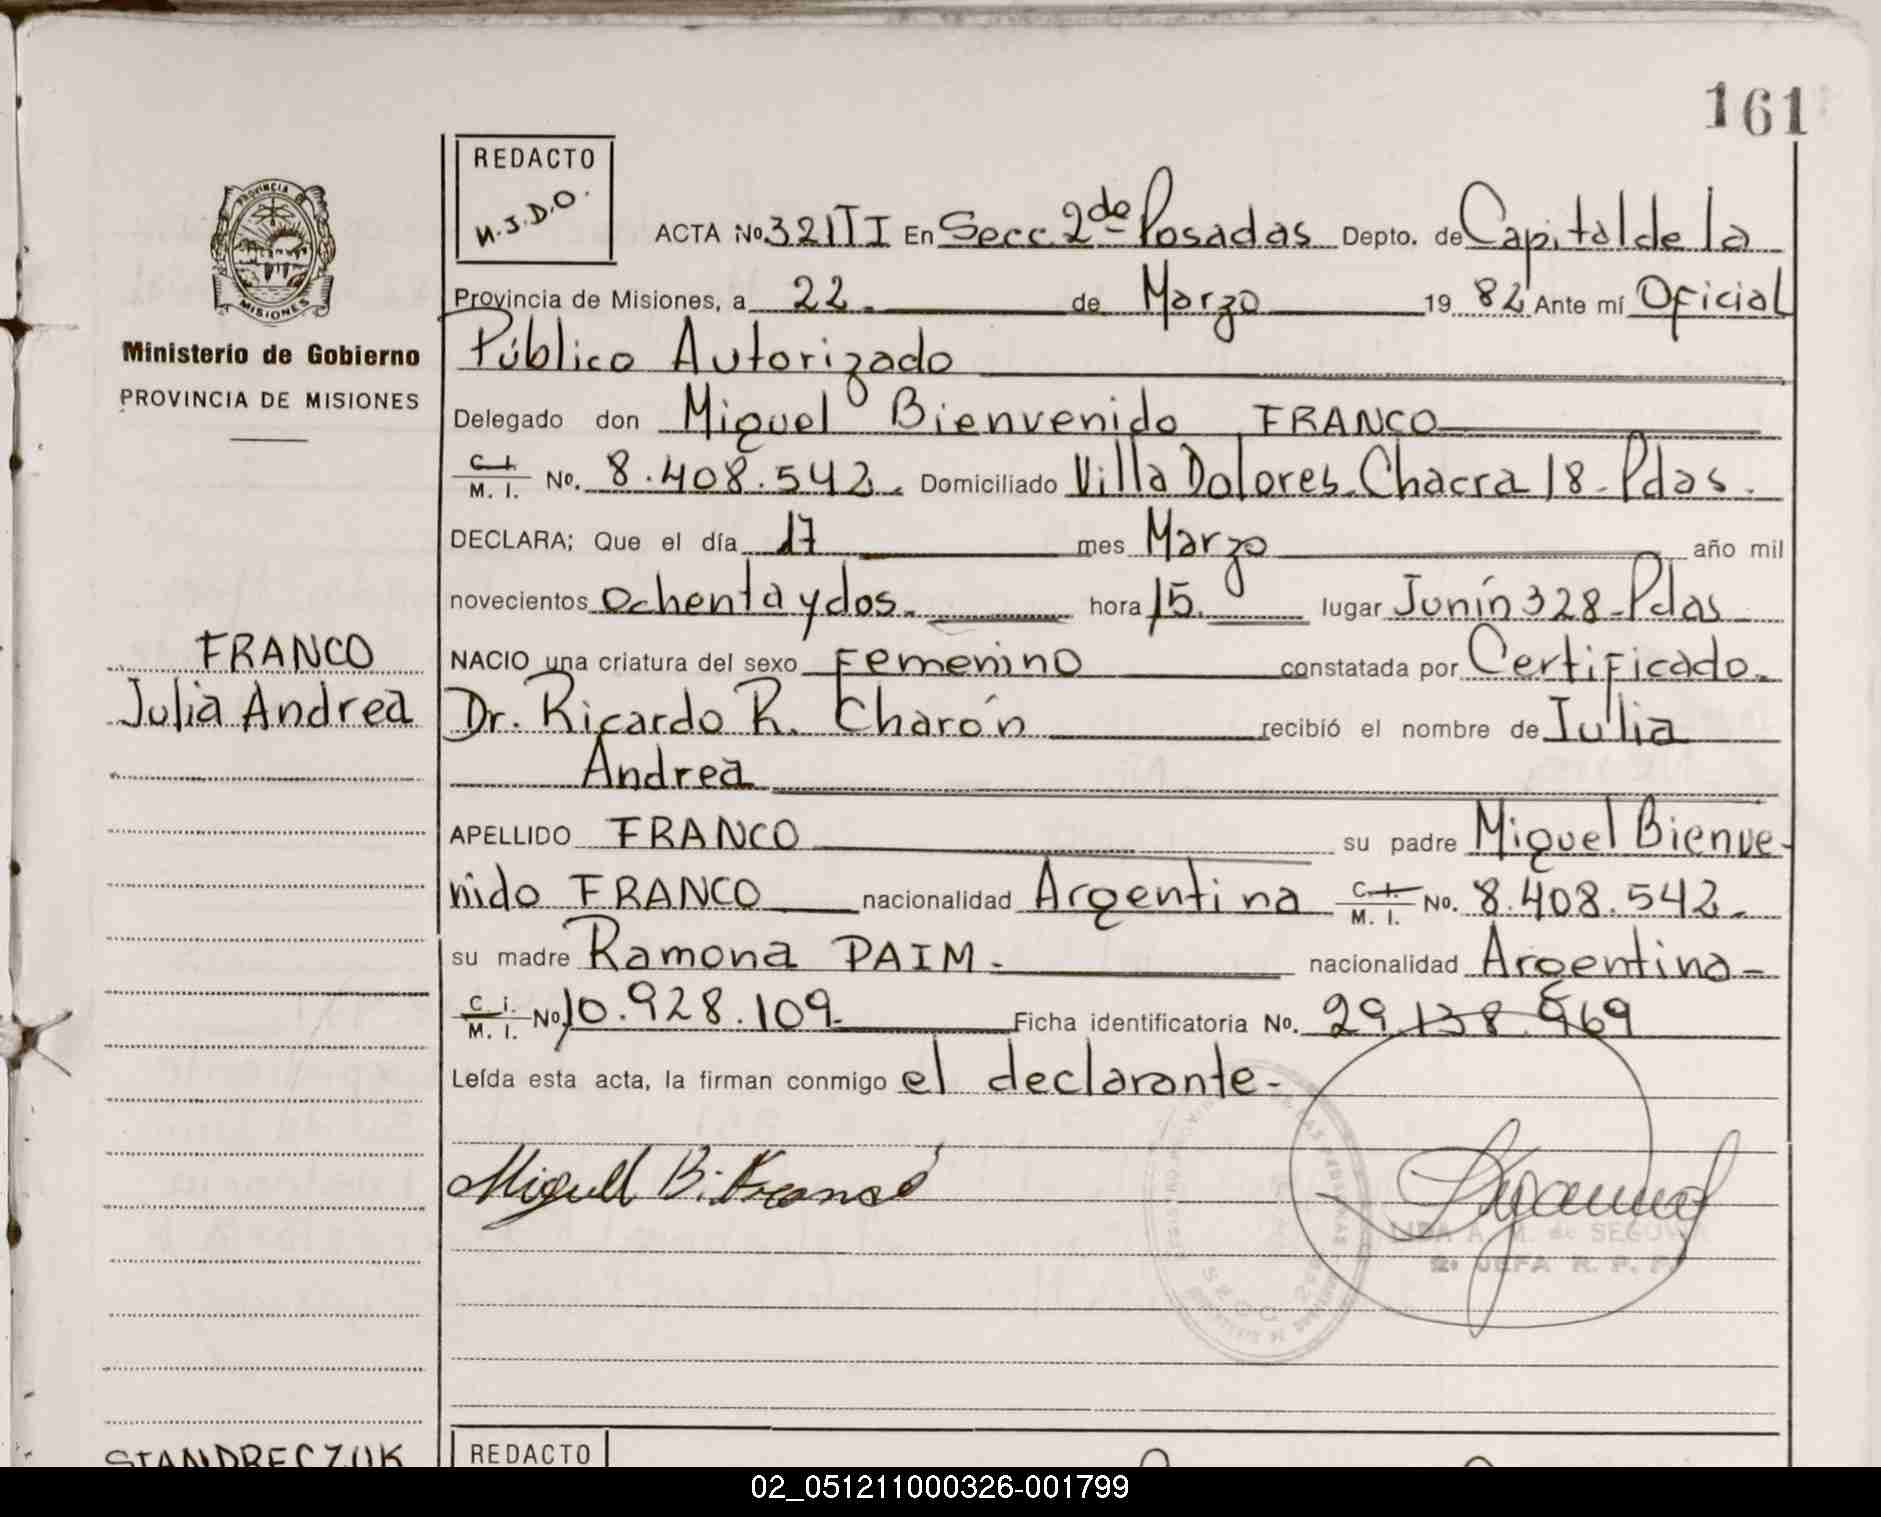 161
REDACTO
N.J.D.O.
PROVINCIA DE
MISIONES
Ministerio de Gobierno
PROVINCIA DE MISIONES
ACTA No. 321TI En Secc. 2da Posadas Depto. de Capital de la
Provincia de Misiones, a 22 de Marzo 1982 Ante mí Oficial
Público Autorizado
Delegado don Miguel Bienvenido FRANCO
C. I. M. I. No. 8.408.542. Domiciliado Villa Dolores. Chacra 18 - Pdas.
DECLARA; Que el día 17 mes Marzo año mil
novecientos ochenta y dos. hora 15. lugar Junín 328 - Pdas
FRANCO
Julia Andrea
NACIO una criatura del sexo Femenino constatada por Certificado.
Dr. Ricardo R. Charón recibió el nombre de Julia
Andrea
APELLIDO FRANCO su padre Miguel Bienve-
nido FRANCO nacionalidad Argentina C. I. M. I. No. 8.408.542.
su madre Ramona PAIM. nacionalidad Argentina
C. I. M. I. No. 10.928.109. Ficha identificatoria No. 29.138.969
Leída esta acta, la firman conmigo el declarante-
Miguel B. Franco
LIDA A. M. de SEGOVIA
2º JEFA R. P. P.
STANDRECZUK
REDACTO
02_051211000326-001799